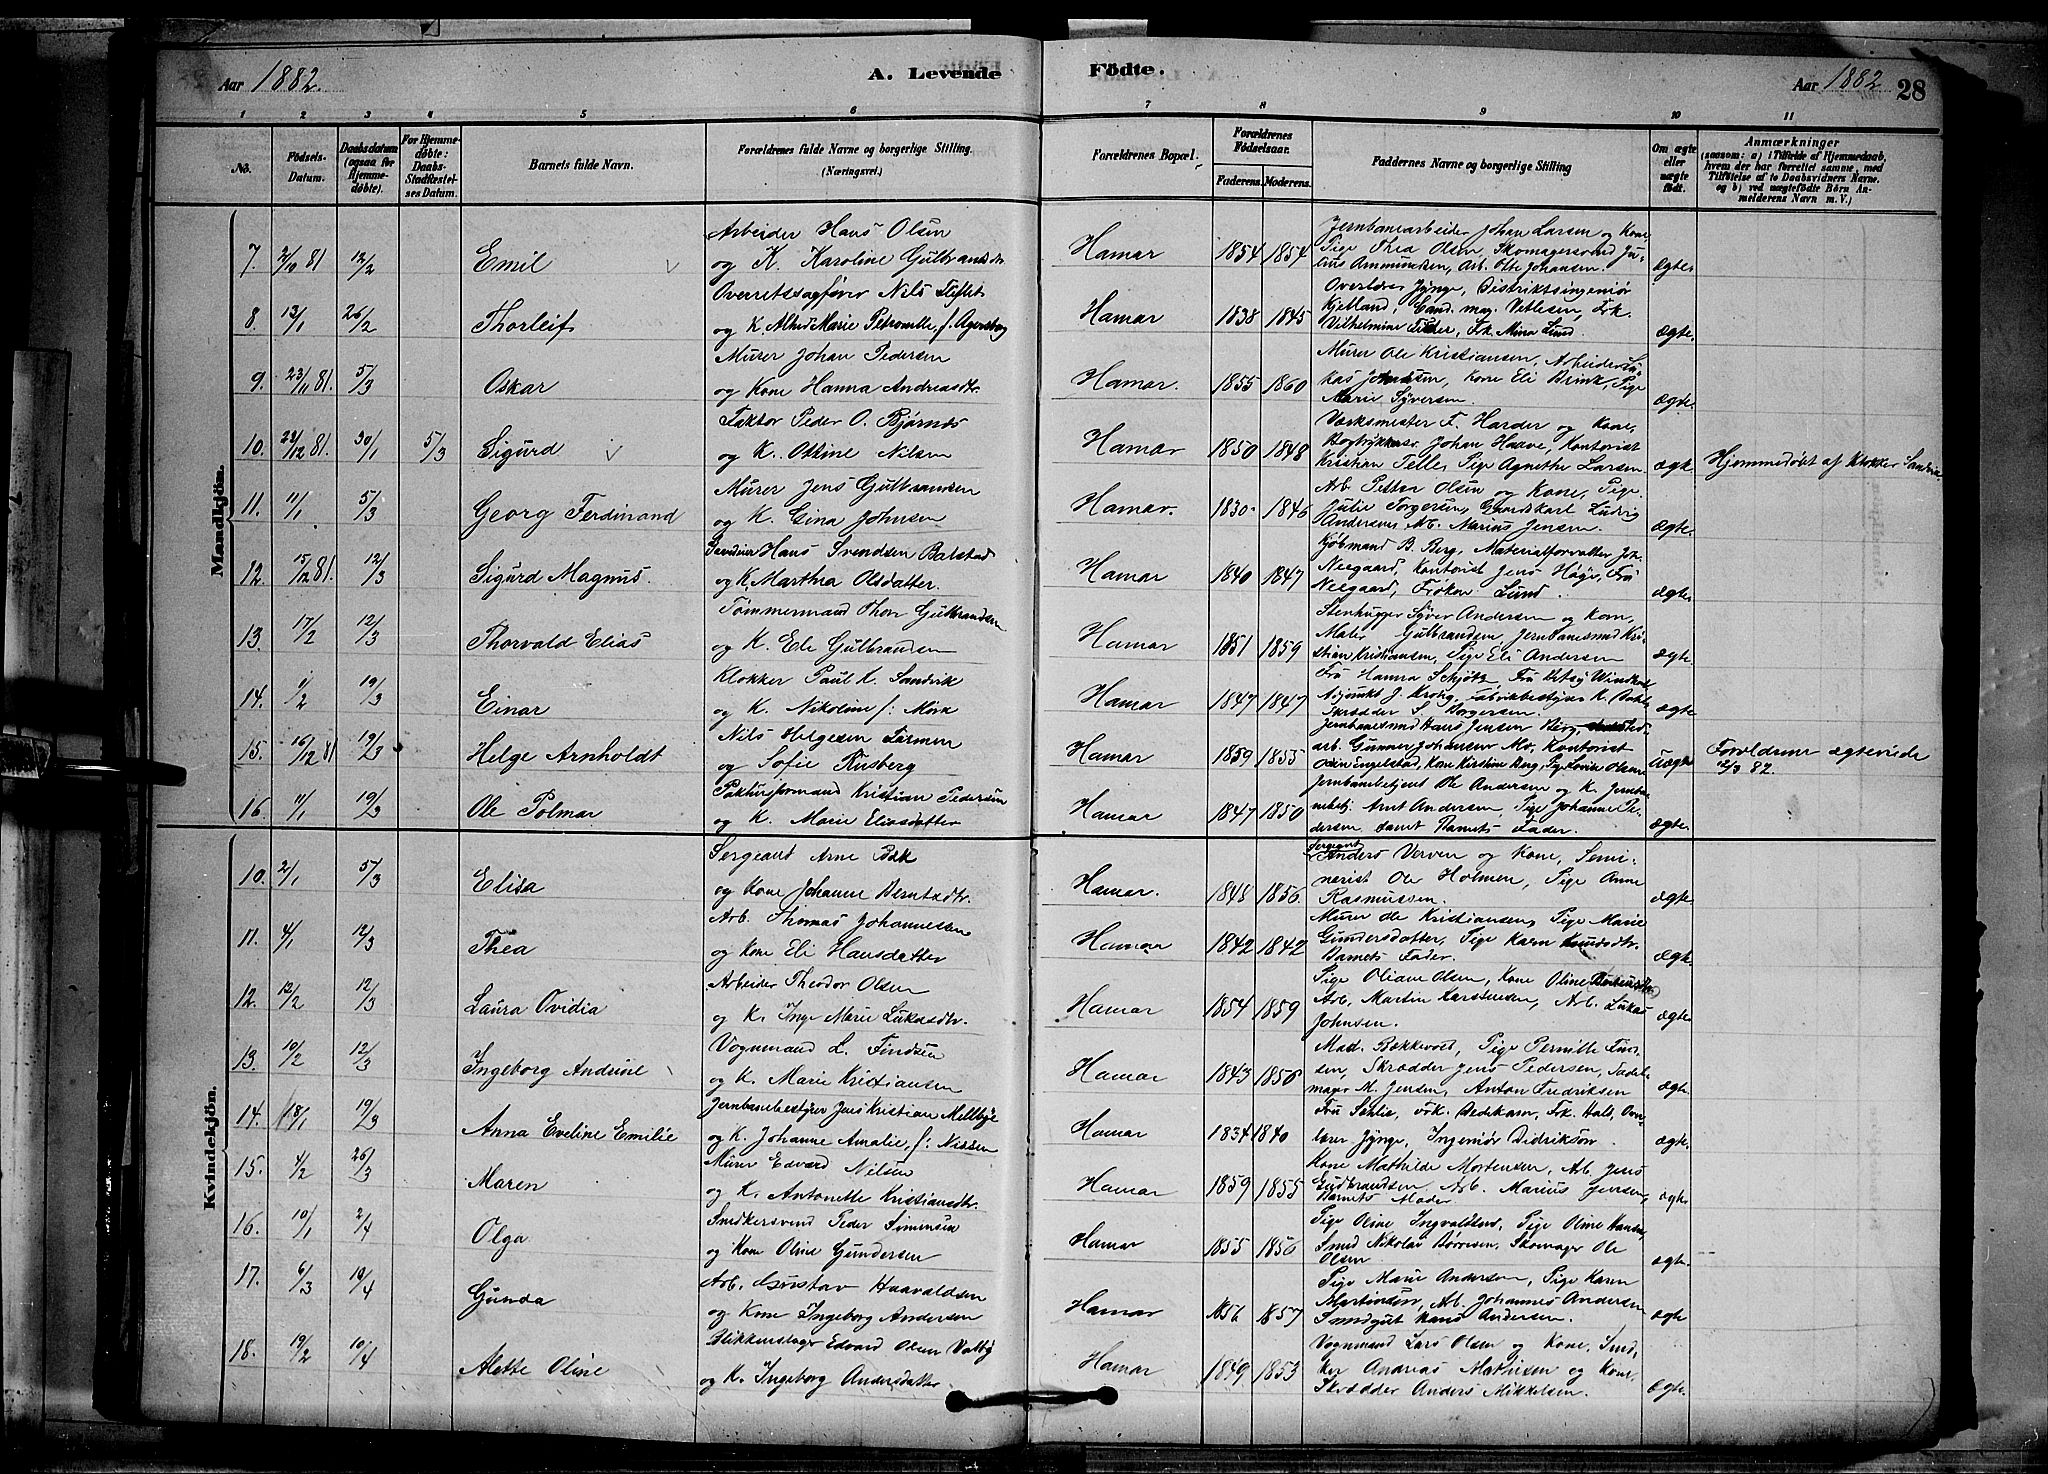 Aar 1882.
A. Levende
Födte.
Aar 1882
28
1 2 3 4 5 6 7 8 9 10 11
No.
Födsels-Datum.
Daabsdatum (ogsaa for Hjemmedøbte).
For Hjemmedøbte: Daabs-Stadfæstelses Datum.
Barnets fulde Navn.
Forældrenes fulde Navne og borgerlige Stilling.
(Næringsvei.)
Forældrenes Bopæl.
Forældrenes Födselsaar.
Faderens. Moderens.
Faddernes Navne og borgerlige Stilling
Om ægte eller uægte født.
Anmærkninger
(saasom: a) i Tilfælde af Hjemmedaab, hvem der har forrettet samme, med Tilføielse af to Daabsvidners Navne, og b) ved uægtefödte Börn Anmelderens Navn m. V.)
Mandkjön.
Arbeider Hans Olsen
7. 2/10 81 12/2 Emil og K. Karoline Gulbrandsdtr. Hamar 1854 1854 Jernbanearbeider Johan Larsen og Kone
Pige Thea Olsen, Skomagersvend Ju-
lius Amundsen, Arb. Otto Johansen. ægte
Overretssagfører Nils
8. 13/1 26/2 Thorleif og K Marie Petronelle, f. Hamar 1838 1845 Overlærer Jynge, Distriktsingeniør
Kjelland, Cand. mag. Vetlesen, Frk.
Vilhelmine Frk. Mina Lund. ægte.
Murer Johan Pedersen
9. 23/11 81. 5/3 Oskar og Kone Hanna Andreasdtr. Hamar. 1855 1860 Murer Ole Kristiansen, Arbeider Lu-
kas Johnsen, Kone Eli Brink, Pige
Marie Syversen. ægte.
Faktor Peder O. Bjørnes
10. 23/12 81. 30/1 5/3 Sigurd og K. Ottine Nilsen Hamar 1850 1848 Værksmester F. Harder og Kone,
Bogtrykker Johan Haave, Kontorist
Kristian Pige Agnethe Larsen ægte. Hjemmedøbt af Klokker Sandvik.
Murer Jens Gulbrandsen
11. 11/1 5/3 Georg Ferdinand og K. Gina Johnsen Hamar. 1830 1846 Arb. Petter Olsen og Kone, Pige
Julie Torgersen, Gaardskarl Ludvig
Andersen, Arb. Marius Jensen. ægte.
Hans Svendsen Balstad
12. 15/12 81. 12/3 Sigurd Magnus. og K. Marthea Olsdatter. Hamar 1840 1847 Kjøbmand B. Berg, Materialforvalter Joh.
Neegaard, Kontorist Jens Fru
Neegaard, Frøken Lund. ægte.
Tømmermand Thor Gulbrandsen
13. 17/2 12/3 Thorvald Elias og K. Eli Gulbrandsen Hamar 1851 1859 Stenhugger Syver Andersen og Kone,
Maler Gulbrandsen, Jernbanesmed Kri-
stian Kristiansen, Pige Eli Andersen ægte.
Klokker Paul K. Sandvik
14. 1/2 19/3 Einar og K. Nikoline f: Mørk Hamar 1847 1847 Fru Hanna Schjøtz, Fru Betsy
Adjunkt J. Fabrikbestyrer K.
Skrædder S. Borgersen. ægte
Nils Helgesen Farmen
15. 16/12 81 19/3 Helge Arnholdt og Sofie Hamar 1859 1855 Jernbanesmed Hans Jensen Berg,
arb. Gunnar Johansen Mo, Kontorist
Engelstad, Kone Kirstine Berg, Pige Lovise Olsen uægte Forældrene ægteviede
12/3 82.
Kristian Pedersen
16. 11/1 19/3 Ole Polmar og K. Marie Eliasdatter Hamar 1847 1850 Jernbanebetjent Ole Andersen og K. Jernba-
nebetj. Arnt Andersen, Pige Johanne Pe-
dersen samt Barnets Fader. ægte.
Kvindekjön.
Sergeant Arne Bak
10. 2/1 5/3 Elisa og Kone Johanne Berntsdtr. Hamar. 1848 1856 Sergeant
Anders Verven og Kone, Semi-
narist Ole Holmen, Pige Anne
Rasmussen. ægte.
Arb. Thomas Johannesen
11. 4/1 12/3 Thea og Kone Eli Hansdatter Hamar 1842 1842 Murer Ole Kristiansen, Pige Marie
Gundersdatter, Pige Karen Knudsdtr.
Barnets Fader. ægte.
Arbeider Theodor Olsen
12. 12/2 12/3 Laura Ovidia og K. Inge Marie Lukasdtr. Hamar 1854 1859 Pige Oliane Olsen, Kone Oline
Arb. Martin Karstensen, Arb. Lukas
Johnsen. ægte
Vognmand L. Findsen
13. 10/2 12/3 Ingeborg Andrine og K. Marie Kristiansen Hamar 1843 1856 Mad. Bækkevold, Pige Pernille Find-
sen, Skrædder Jens Pedersen, Sadel-
mager M. Jensen, Anton Fredriksen ægte
Jernbanebestyrer Jens Kristian Mellbye
14. 18/1 19/3 Anna Eveline Emilie og K. Johanne Amalie, f: Nissen Hamar 1834 1840 Fru Sehlie, Frk. Bedekam, Frk. Hall, Over-
lærer Jynge, Ingeniør Didrikson. ægte.
Murer Edvard Nilsen
15. 4/2 26/3 Maren og K. Antonette Kristiansdtr. Hamar 1859 1855 Kone Mathilde Mortensen, Arb. Jens
Gudbrandsen, Arb. Marius Jensen,
Barnets Moder ægte
Snedkersvend Peder Simensen
16. 10/1 2/4 Olga og Kone Oline Gundersen Hamar 1855 1856 Pige Oline Ingvaldsen, Pige Oline Hansen
Smed Nikolai Børresen, Skomager Ole
Olsen ægte.
Arb. Gustav Haavaldsen
17. 6/3 10/4 Gunda og Kone Ingeborg Andersen Hamar 1856 1857 Pige Marie Andersen, Pige Karen
Martinsen, Arb. Johannes Andersen
Smedgut Hans Andersen. ægte
Blikkenslager Edvard Olsen Valby
18. 19/2 10/4 Alette Oline og K. Ingeborg Andersdatter Hamar 1849 1853 Vognmand Lars Olsen og Kone, Sned-
ker Andreas Mathisen og Kone
Skrædder Anders Mikkelsen. ægte.